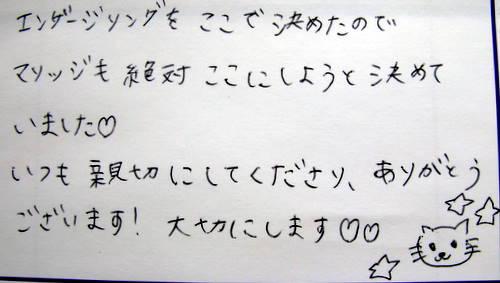 エンゲージリングを ここで決めたので
マリッジも 絶対 ここにしようと決めて
いました♡
いつも 親切にしてくださり、ありがとう
ございます! 大切にします♡♡